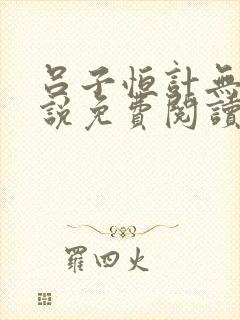 呂子恒計無
說免費閱讀
羅四火